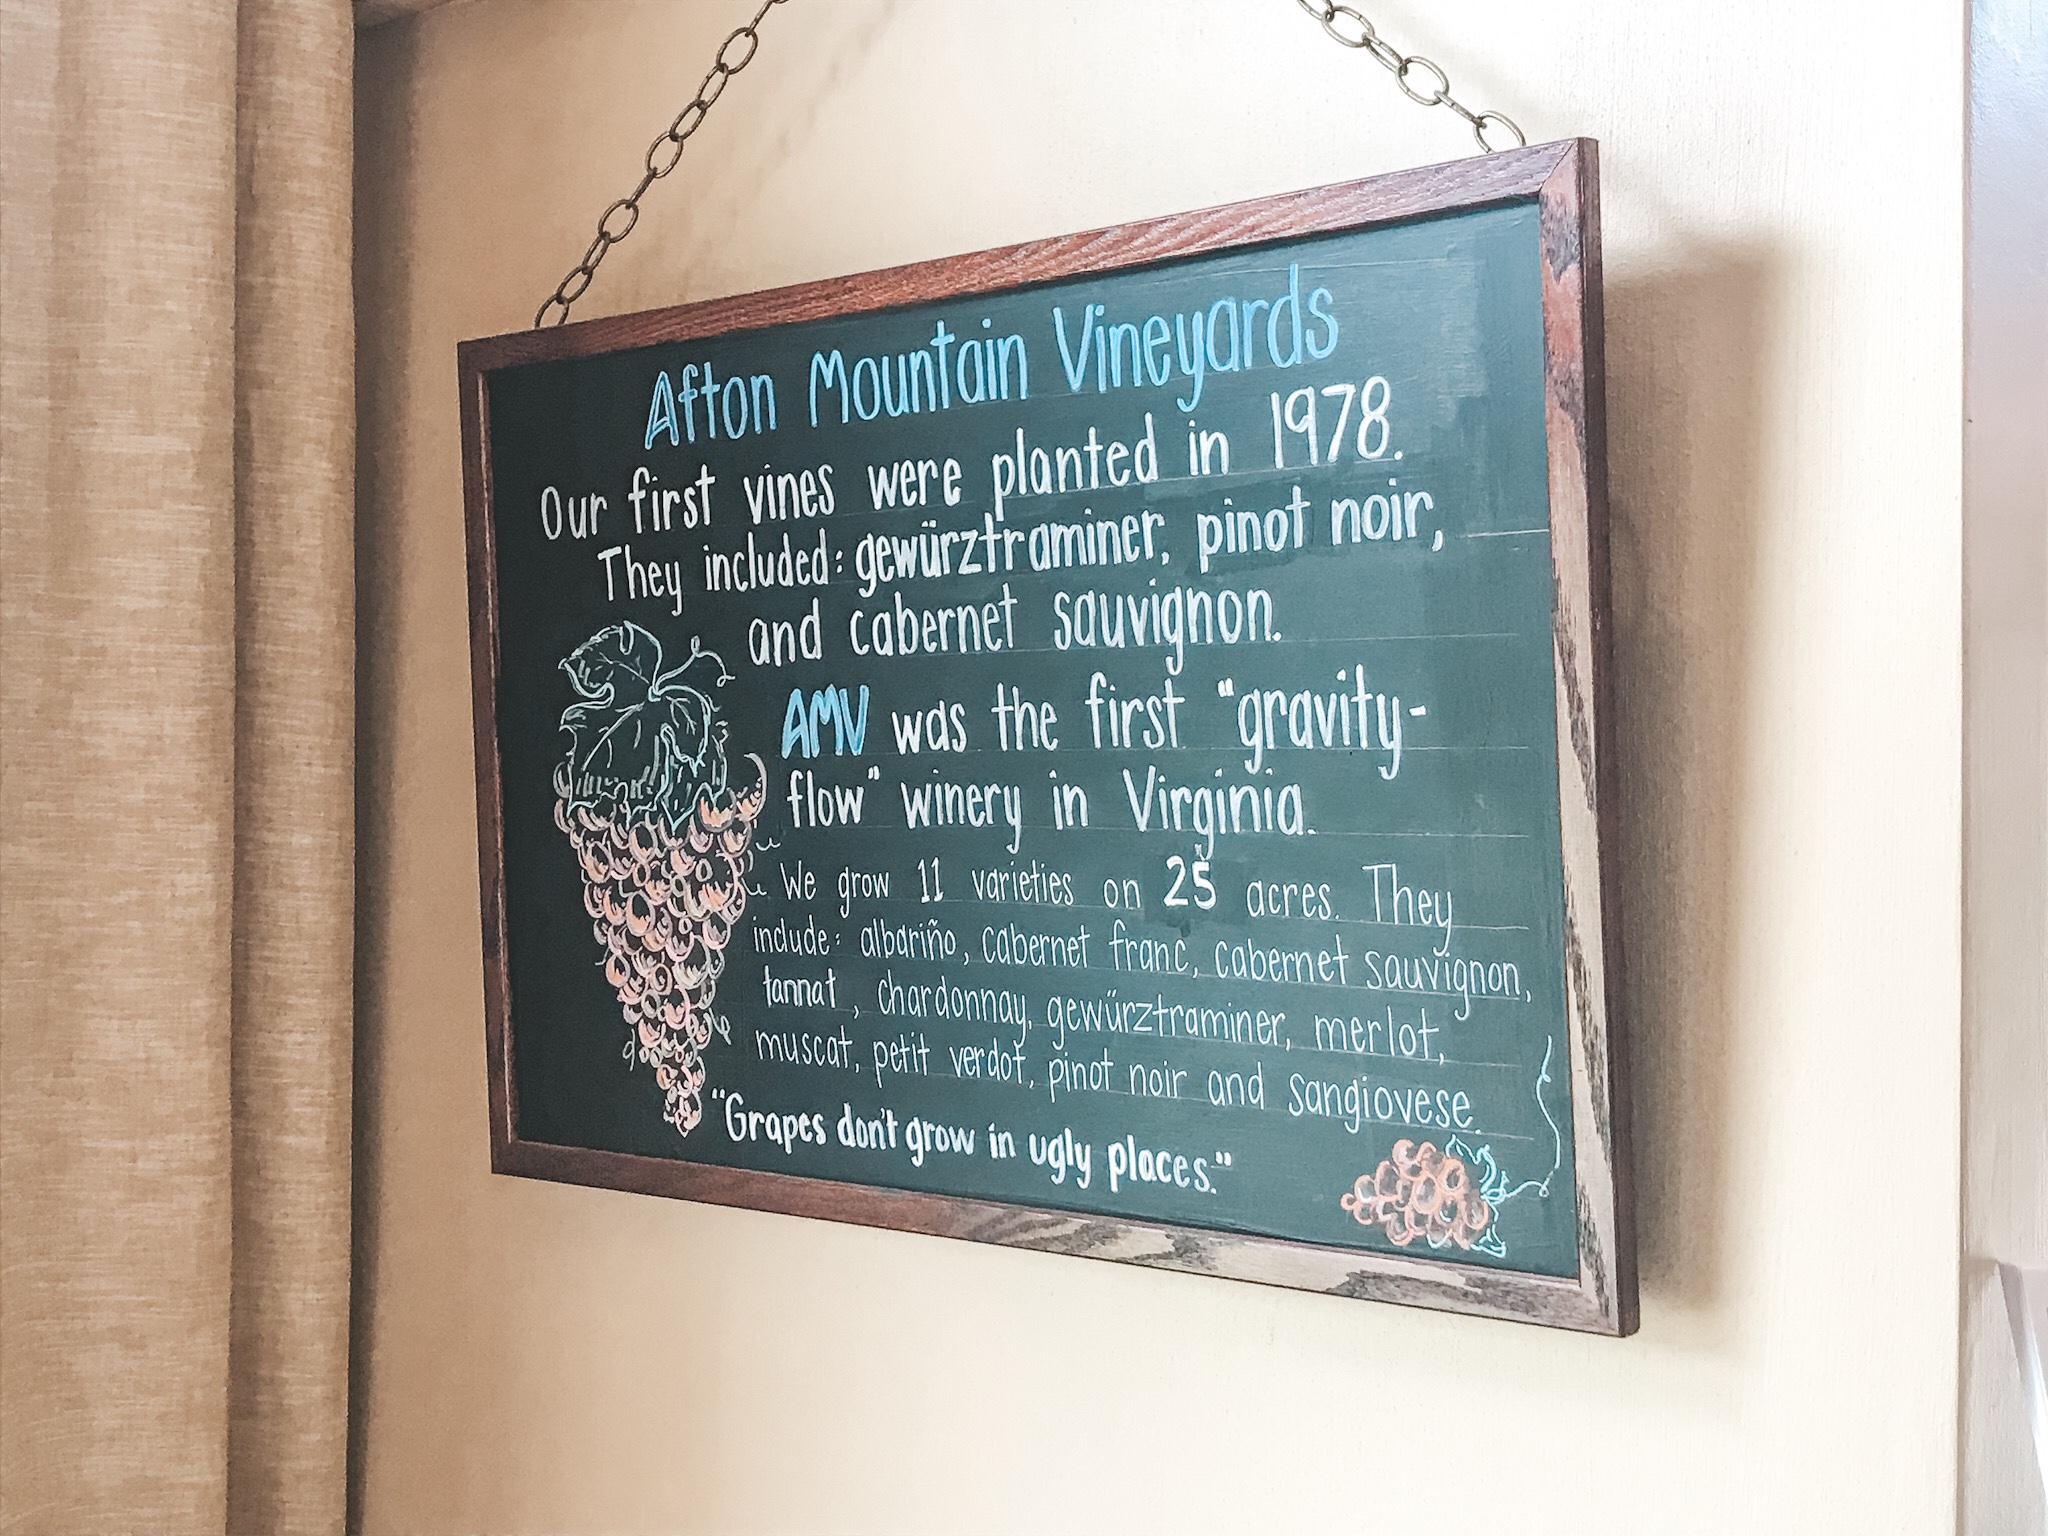 Afton Mountain Vineyards
Our first vines were planted in 1978.
They included: gewürztraminer, pinot noir,
and cabernet sauvignon.
AMV was the first "gravity-
flow" winery in Virginia.
We grow 11 varieties on 25 acres. They
include: albariño, cabernet franc, cabernet sauvignon,
tannat, chardonnay, gewürztraminer, merlot,
muscat, petit verdot, pinot noir and sangiovese.
"Grapes don't grow in ugly places."